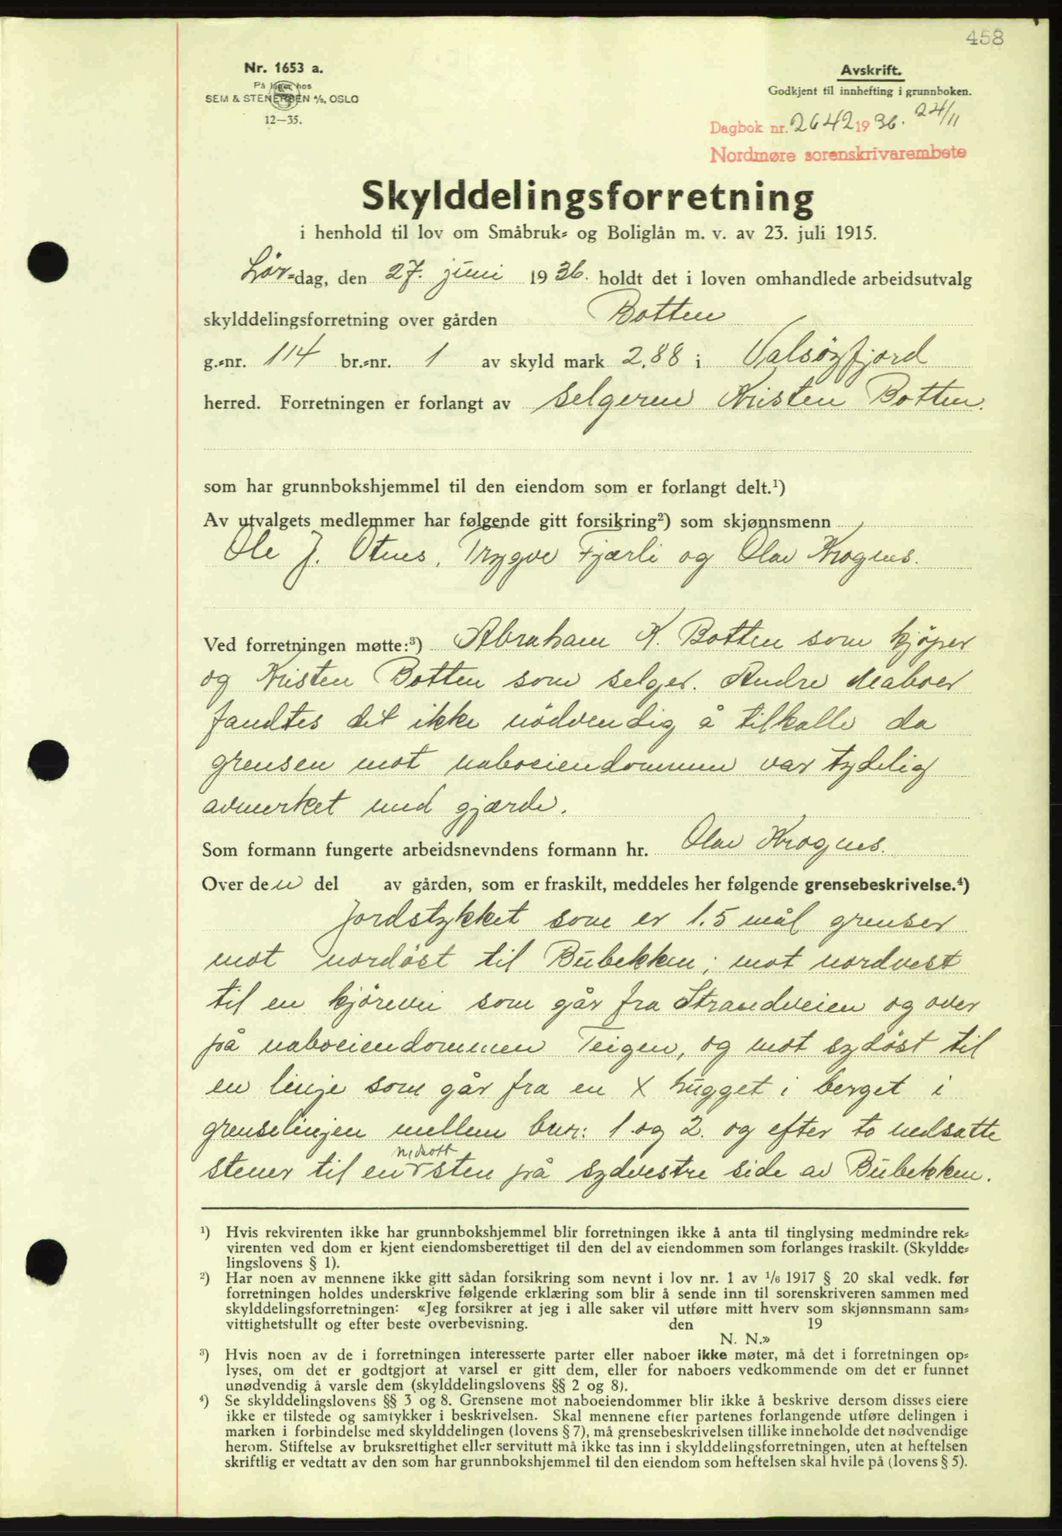 458
Nr. 1653 a.
På lager hos
SEM & STENERSEN A/S, OSLO
12—35.
Avskrift.
Godkjent til innhefting i grunnboken.
Dagbok nr. 2642 1936. 24/11
Nordmøre sorenskrivarembete
Skylddelingsforretning
i henhold til lov om Småbruk- og Boliglån m. v. av 23. juli 1915.
Lør-dag, den 27. juni 1936. holdt det i loven omhandlede arbeidsutvalg
skylddelingsforretning over gården Botten
g.-nr. 114 br.-nr. 1 av skyld mark 2,88 i Valsøyfjord
herred. Forretningen er forlangt av selgeren Kristen Botten.
som har grunnbokshjemmel til den eiendom som er forlangt delt.¹)
Av utvalgets medlemmer har følgende gitt forsikring²) som skjønnsmenn
Ole J. Otnes, Trygve Fjærli og Olav Krognes.
Ved forretningen møtte:³) Abraham K. Botten som kjøper
og Kristen Botten som selger. Andre naboer
fandtes det ikke nödvendig å tilkalle da
grensen mot naboeiendommen var tydelig
avmerket med gjærde.
Som formann fungerte arbeidsnevndens formann hr. Olav Krognes.
Over den del av gården, som er fraskilt, meddeles her følgende grensebeskrivelse.⁴)
Jordstykket som er 1.5 mål grenser
mot nordöst til Bubekken; mot nordvest
til en kjörevei som går fra Strandveien og over
på naboeiendommen Teigen, og mot sydöst til
en linje som går fra en X hugget i berget i
grenselinjen mellem bnr: 1 og 2. og efter to nedsatte
stener til en nedsatt sten på sydvestre side av Bubekken.
¹) Hvis rekvirenten ikke har grunnbokshjemmel blir forretningen ikke å anta til tinglysing medmindre rek-
virenten ved dom er kjent eiendomsberettiget til den del av eiendommen som forlanges fraskilt. (Skyldde-
lingslovens § 1).
²) Har noen av mennene ikke gitt sådan forsikring som nevnt i lov nr. 1 av 1/6 1917 § 20 skal vedk. før
forretningen holdes underskrive følgende erklæring som blir å sende inn til sorenskriveren sammen med
skylddelingsforretningen: «Jeg forsikrer at jeg i alle saker vil utføre mitt hverv som skjønnsmann sam-
vittighetsfullt og efter beste overbevisning. den 19
N. N.»
³) Hvis noen av de i forretningen interesserte parter eller naboer ikke møter, må det i forretningen op-
lyses, om det er godtgjort at varsel er gitt dem, eller for naboers vedkommende om det er funnet
unødvendig å varsle dem (skylddelingslovens §§ 2 og 8).
⁴) Se skylddelingslovens §§ 3 og 8. Grensene mot naboeiendommer blir ikke å beskrive dersom disses eiere
ikke er tilstede og samtykker i beskrivelsen. Skal mennene efter partenes forlangende utføre delingen i
marken i forbindelse med skylddelingen (lovens § 7), må grensebeskrivelsen tillike inneholde det nødvendige
herom. Stiftelse av bruksrettighet eller servitutt må ikke tas inn i skylddelingsforretningen, uten at heftelsen
skriftlig er vedtatt av den som har grunnbokshjemmel til den eiendom som heftelsen skal hvile på (lovens § 5).